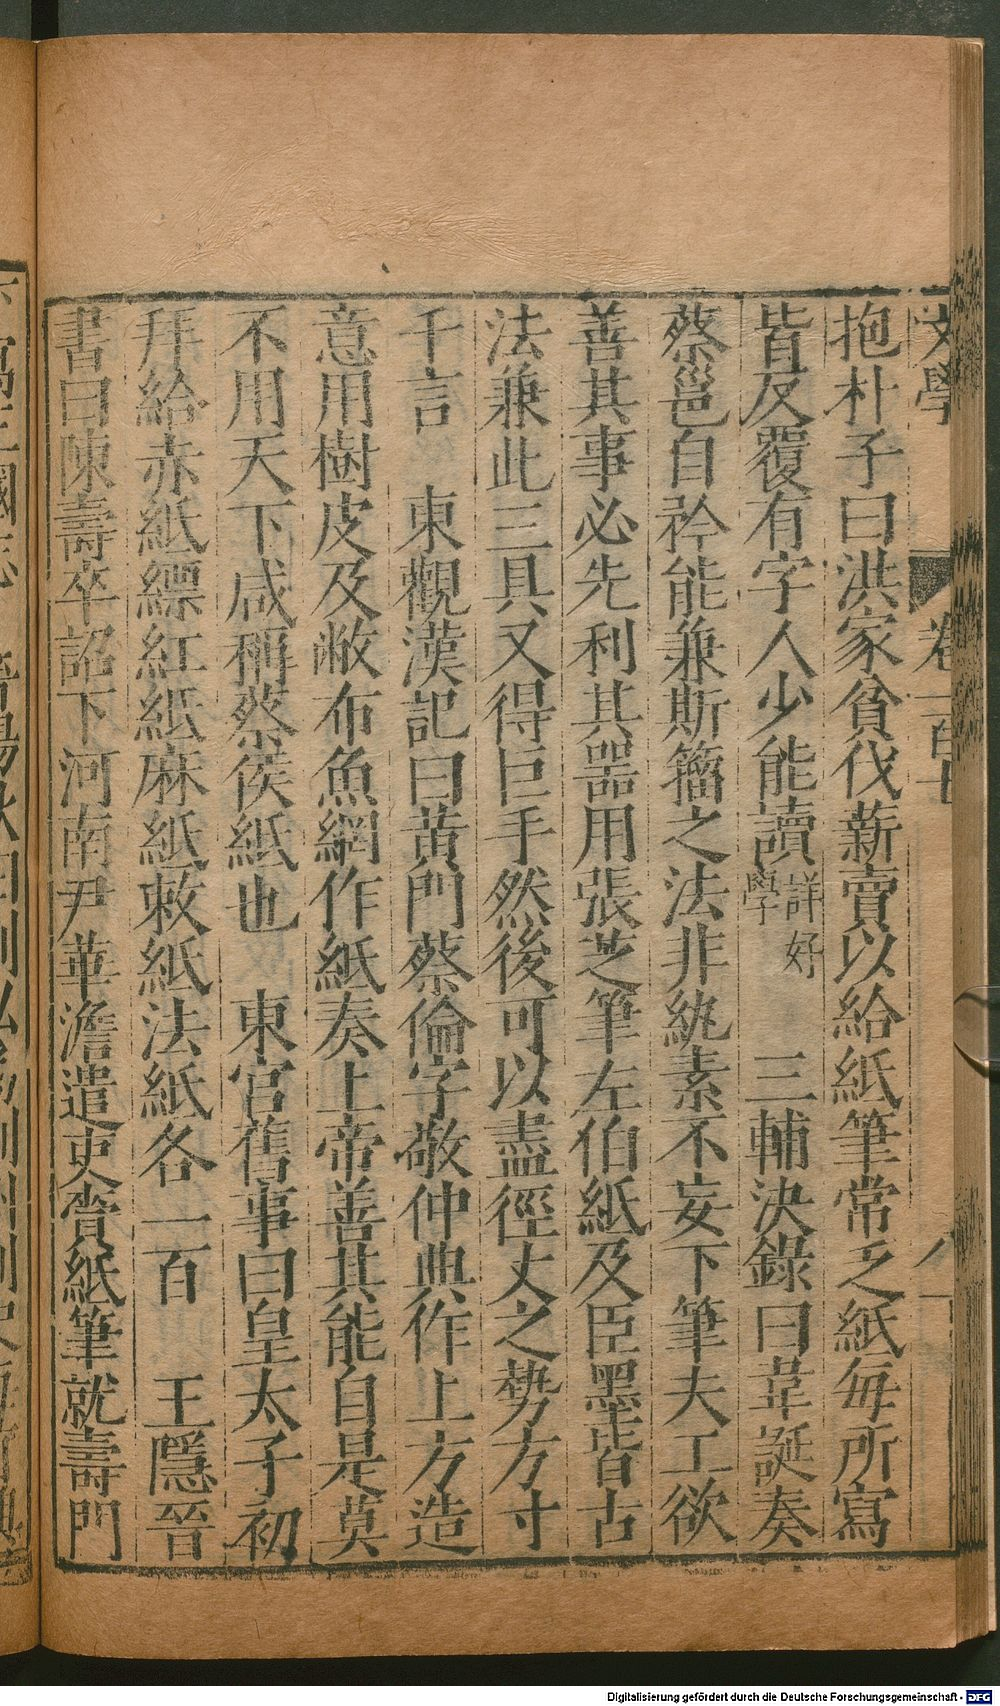 文學
卷一百七
八
抱朴子曰洪家貧伐薪賣以給紙筆常乏紙每所寫
皆反覆有字人少能讀詳好學　三輔決錄曰韋誕奏
蔡邕自矜能兼斯籀之法非紈素不妄下筆夫工欲
善其事必先利其器用張芝筆左伯紙及臣墨皆古
法兼此三具又得巨手然後可以盡徑丈之勢方寸
千言　東觀漢記曰黃門蔡倫字敬仲典作上方造
意用樹皮及敝布魚網作紙奏上帝善其能自是莫
不用天下咸稱蔡侯紙也　東宮舊事曰皇太子初
拜給赤紙縹紅紙麻紙敕紙法紙各一百　王隱晉
書曰陳壽卒詔下河南尹華澹遣吏齎紙筆就壽門
Digitalisierung gefördert durch die Deutsche Forschungsgemeinschaft - DFG